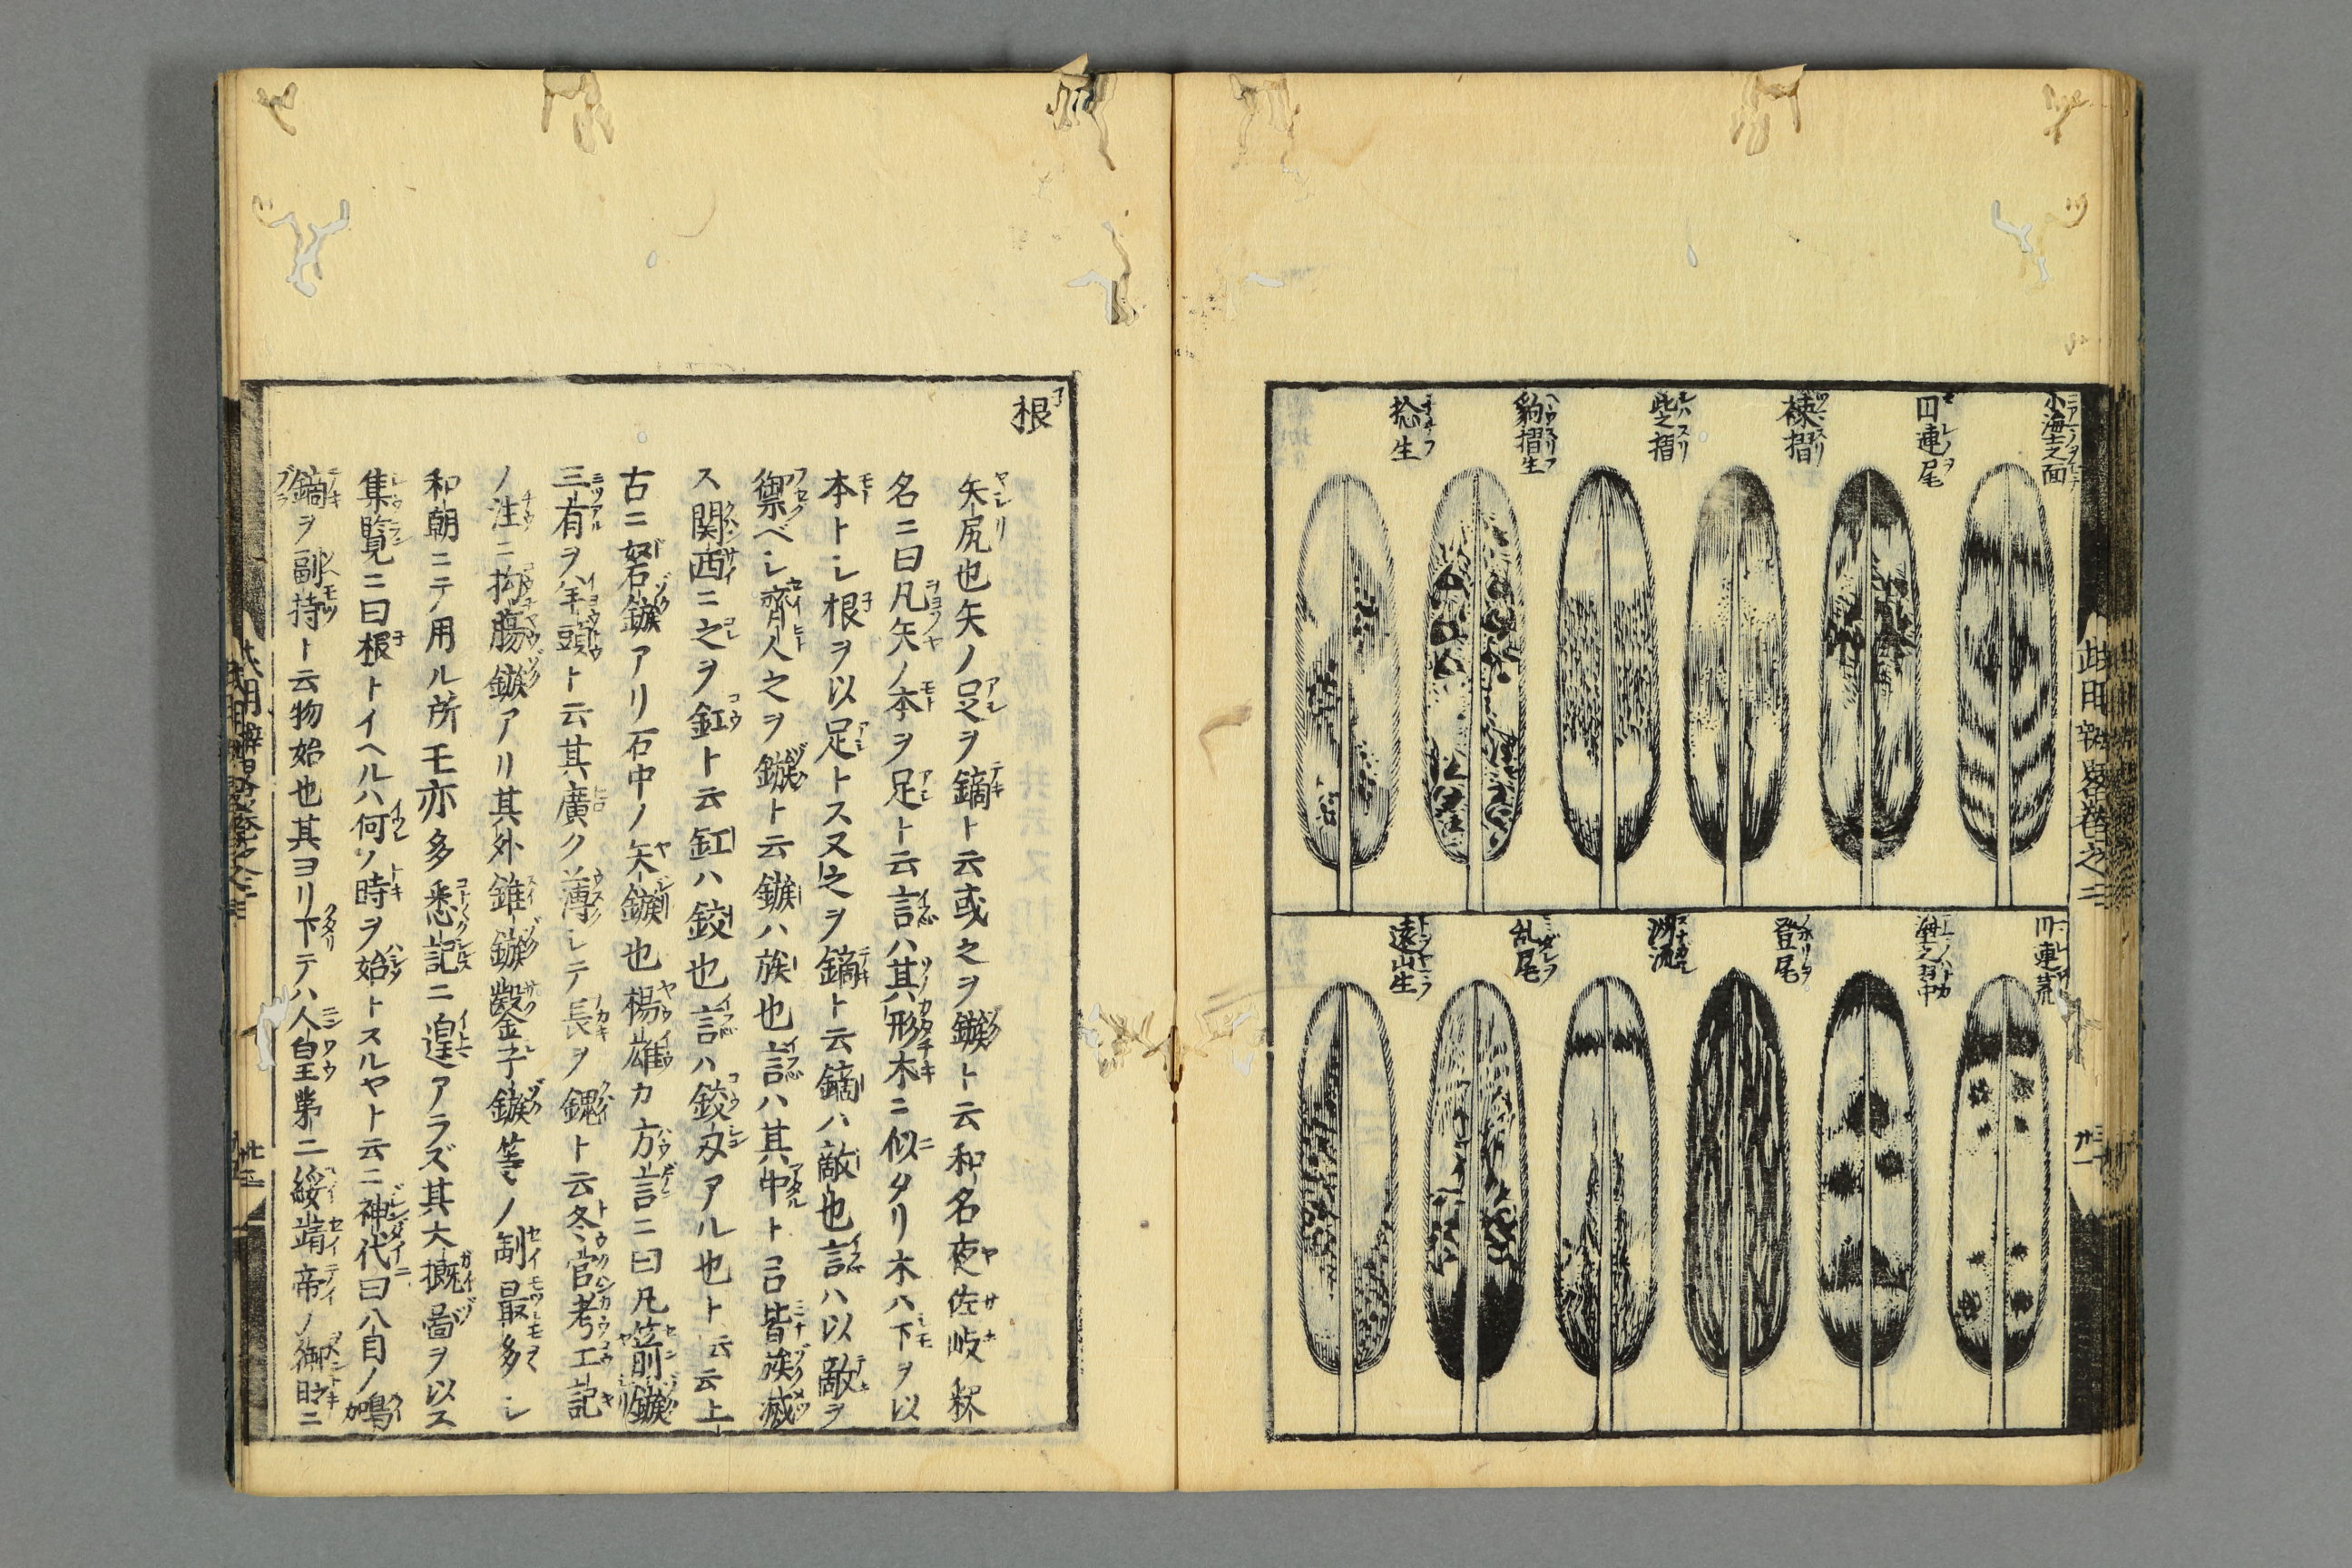 小海士之面
四連尾
褄摺
柴摺
豹摺生
捻生
四連荒
海士之羽中
登尾
洲流
乱尾
遠山生
根
矢尻也矢ノ足ヲ鏑ト云或之ヲ鏃ト云和名夜佐岐釈
名ニ曰凡矢ノ本ヲ足ト云言ハ其形木ニ似タリ木ハ下ヲ以
本トシ根ヲ以足トス又之ヲ鏑ト云鏑ハ敵也言ハ以敵ヲ
禦ベシ齊人之ヲ鏃ト云鏃ハ族也言ハ其中トコロ皆族滅
ス関西ニ之ヲ釭ト云釭ハ鉸也言ハ鉸刃アル也ト云云上
古ニ砮鏃アリ石中ノ矢鏃也楊雄カ方言ニ曰凡箭鏃
三有ヲ羊頭ト云其廣ク薄シテ長ヲ鎞ト云冬官考工記
ノ注ニ拘膓鏃アリ其外錐鏃鑿子鏃等ノ制最多シ
和朝ニテ用ル所モ亦多悉記ニ遑アラズ其大概圖ヲ以ス
集覽ニ曰根トイヘルハ何ノ時ヲ始トスルヤト云ニ神代曰八目ノ鳴
鏑ヲ副持ト云物始也其ヨリ下テハ人皇第二綏靖帝ノ御時ニ